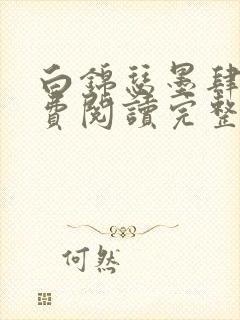 白錦瑟墨肆
費閱讀完整
何然